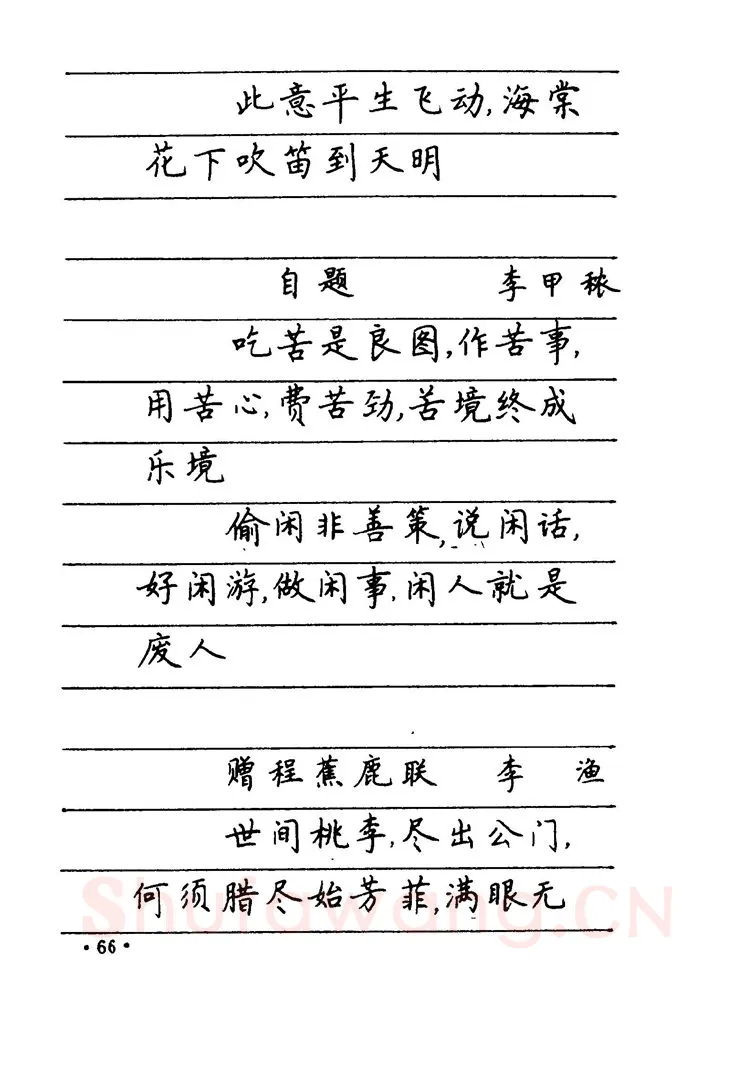 此意平生飞动,海棠
花下吹笛到天明
自题 李甲秾
吃苦是良图,作苦事,
用苦心,费苦劲,苦境终成
乐境
偷闲非善策,说闲话,
好闲游,做闲事,闲人就是
废人
赠程蕉鹿联 李渔
世间桃李,尽出公门,
何须腊尽始芳菲,满眼无
Shufawang.CN
·66·